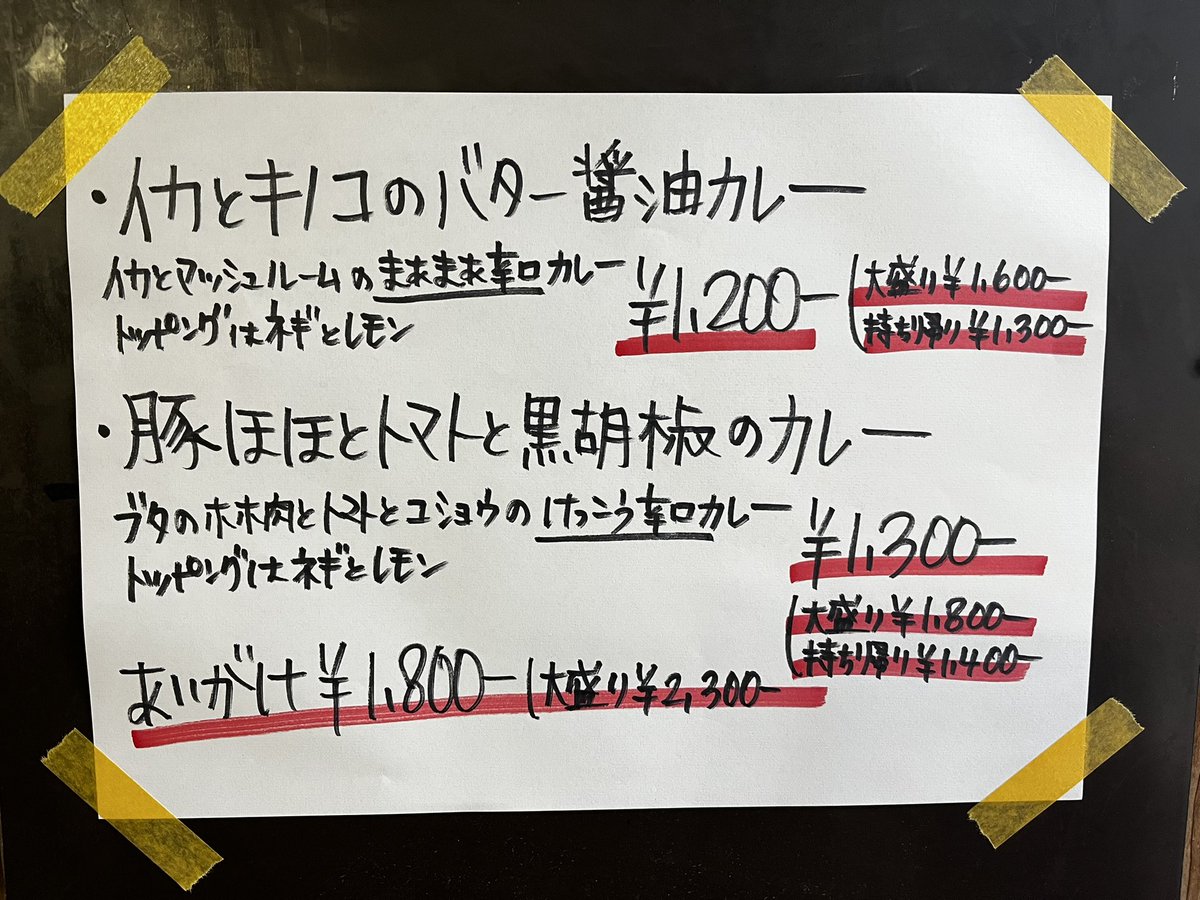 ・イカとキノコのバター醤油カレー
イカとマッシュルームのまあまあ辛口カレー
トッピングはネギとレモン
¥1,200-
(大盛り¥1,600-
持ち帰り¥1,300-
・豚ほほとトマトと黒胡椒のカレー
ブタのホホ肉とトマトとコショウのけっこう辛口カレー
トッピングはネギとレモン
¥1,300-
(大盛り¥1,800-
持ち帰り¥1,400-
あいがけ¥1,800-(大盛り¥2,300-